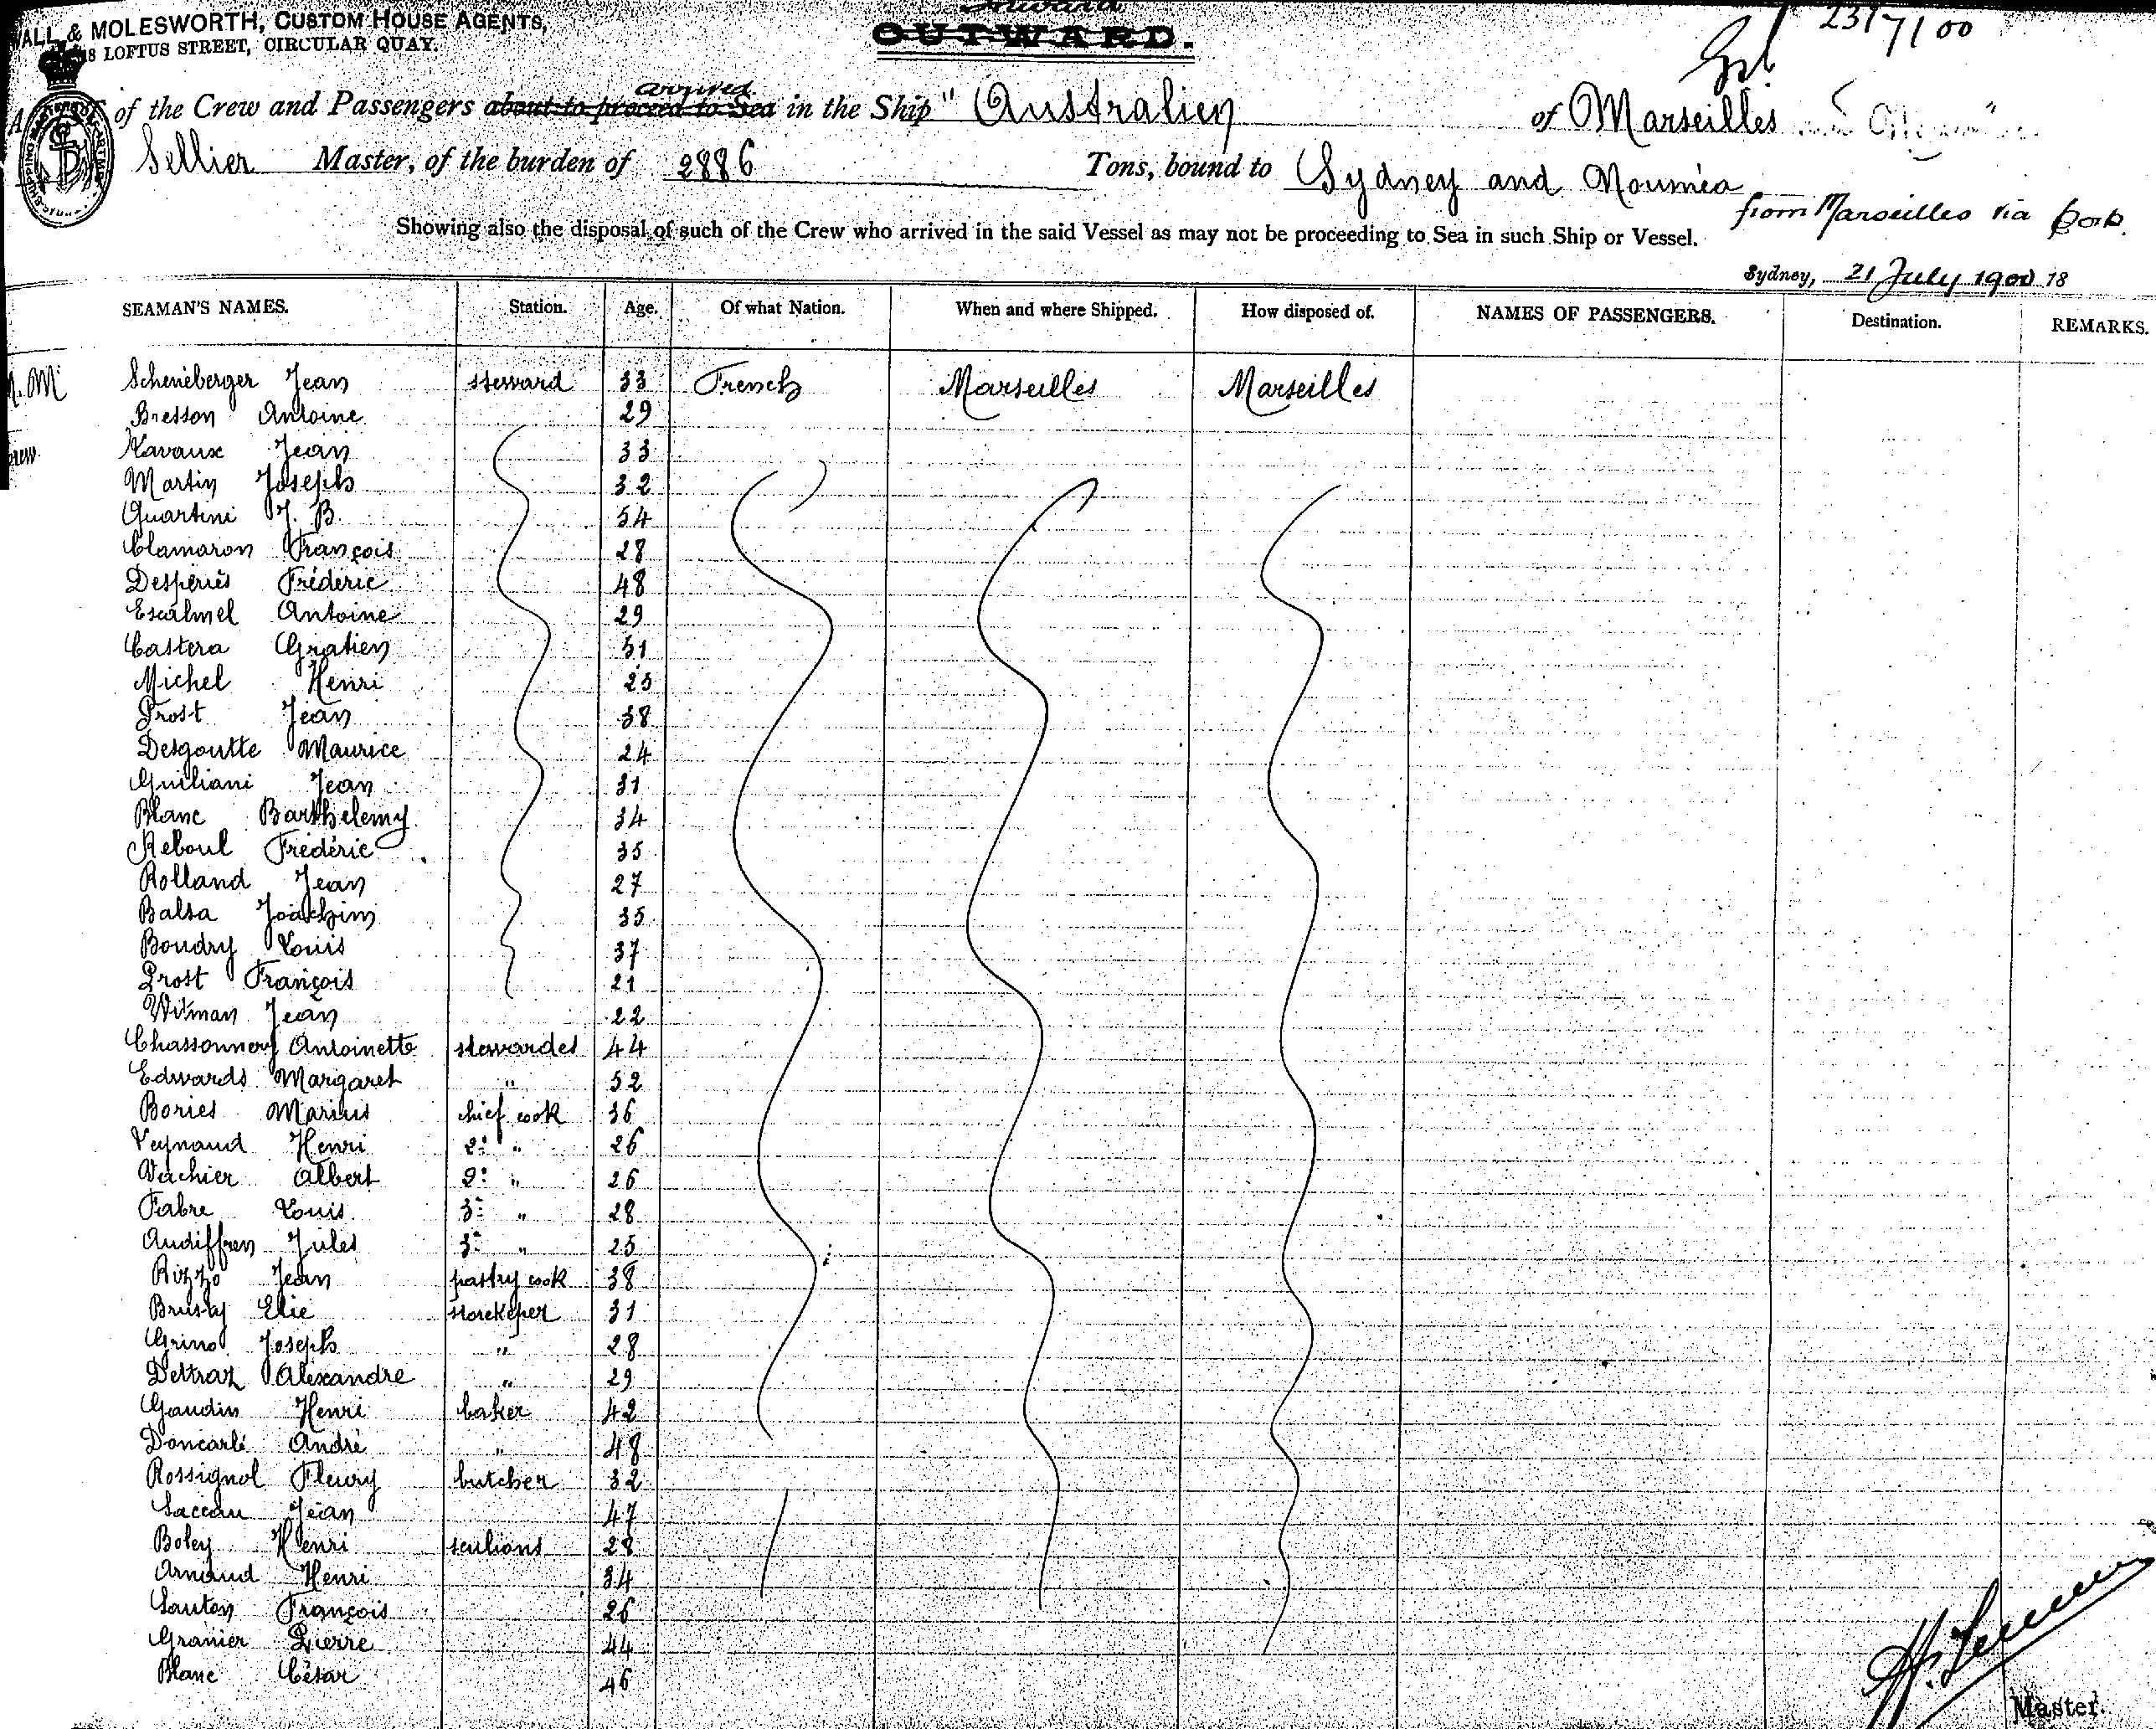 Inward
WALL & MOLESWORTH, CUSTOM HOUSE AGENTS,
8 LOFTUS STREET, CIRCULAR QUAY.
OUTWARD.
23/7/00
arrived
of the Crew and Passengers about to proceed to Sea in the Ship "Australien of Marseilles
Sellier Master, of the burden of 2886 Tons, bound to Sydney and Nouméa
from Marseilles via Ports
Showing also the disposal of such of the Crew who arrived in the said Vessel as may not be proceeding to Sea in such Ship or Vessel.
Sydney, 21 July 1900 18
SEAMAN'S NAMES. Station. Age. Of what Nation. When and where Shipped. How disposed of. NAMES OF PASSENGERS. Destination. REMARKS.
Scheneberger Jean steward 33 French Marseilles Marseilles
Bresson Antoine 29
Lavaux Jean 33
Martin Joseph 32
Quartini J. B. 54
Clamaron François 28
Desperiés Fréderic 48
Escalmel Antoine 29
Castera Gratien 51
Michel Henri 25
Prost Jean 38
Desgoutte Maurice 24
Guiliani Jean 31
Blanc Barthelemy 34
Reboul Frédéric 35
Rolland Jean 27
Balsa Joachim 35
Boudry Louis 37
Prost François 21
Witman Jean 22
Chassonnery Antoinette stewardes 44
Edwards Margaret " 52
Bories Marius chief cook 36
Veynaud Henri 2: " 26
Vachier Albert 2: " 26
Fabre Louis 3: " 28
Audiffren Jules 3: " 25
Rizzo Jean pastry cook 38
Brusty Elie storekeper 31
Grino Joseph " 28
Detraz Alexandre " 29
Gaudin Henri baker 42
Doncarlé André " 48
Rossignol Fleury butcher 32
Saccau Jean 47
Boley Henri sculions 28
Arnaud Henri 34
Sauton François 26
Granier Pierre 44
Blanc César 46
Master.